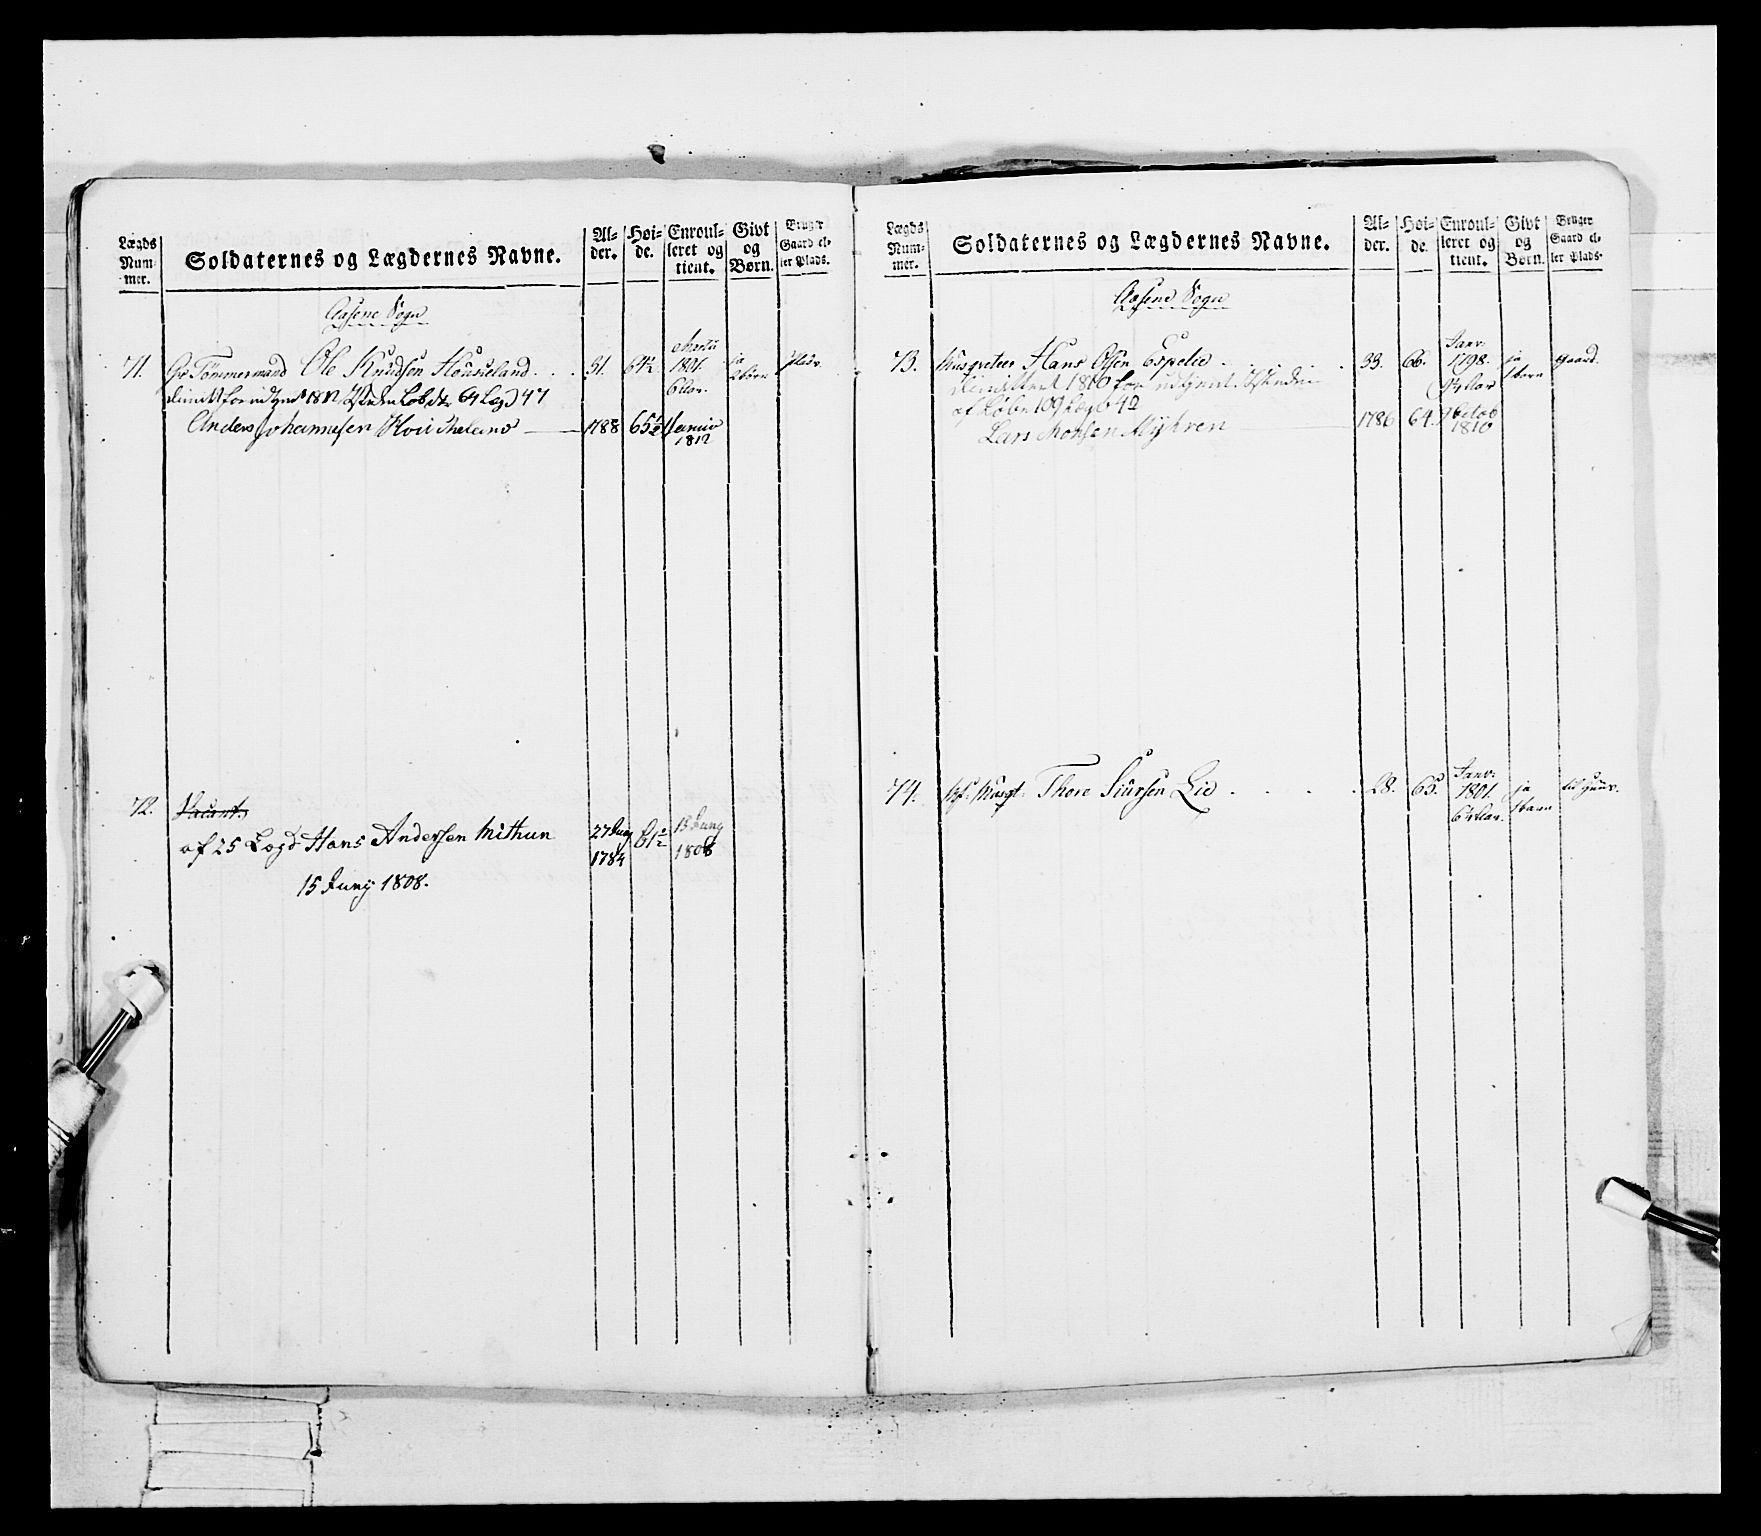 Lægds Num-mer.
Soldaternes og Lægdernes Navne.
Al-der.
Høi-de.
Enroul-leret og tient.
Givt og Børn.
Bruger Gaard el-ler Plads.
Aasene Sogn
71. Tömmermand Ole Knudsen 31. 64½ Martii 1801. 6 Aar. ja 2 börn Plads
1812 64 Lægd 47
Anders Johannesen 1788 65½ Januar 1812
72. Vacant.
af 25 Lægd Hans Andersen Mithun 27 Juny 1784 61½ 15 Juny 1808
15 Junÿ 1808.
Lægds Num-mer.
Soldaternes og Lægdernes Navne.
Al-der.
Høi-de.
Enroul-leret og tient.
Givt og Børn.
Bruger Gaard el-ler Plads.
Aasene Sogn
73. Musqueteer Hans Olsen Espelie 33. 66. Janv: 1798. 9½ Aar ja 1 barn Gaard.
1810 for
af Løbn 109 Lægd 42
Lars Monsen Myhren 1786 64. October 1810
74. Musqt. Thore Siursen Lie 28. 65. Janv: 1801. 6½ Aar. ja 1 barn til